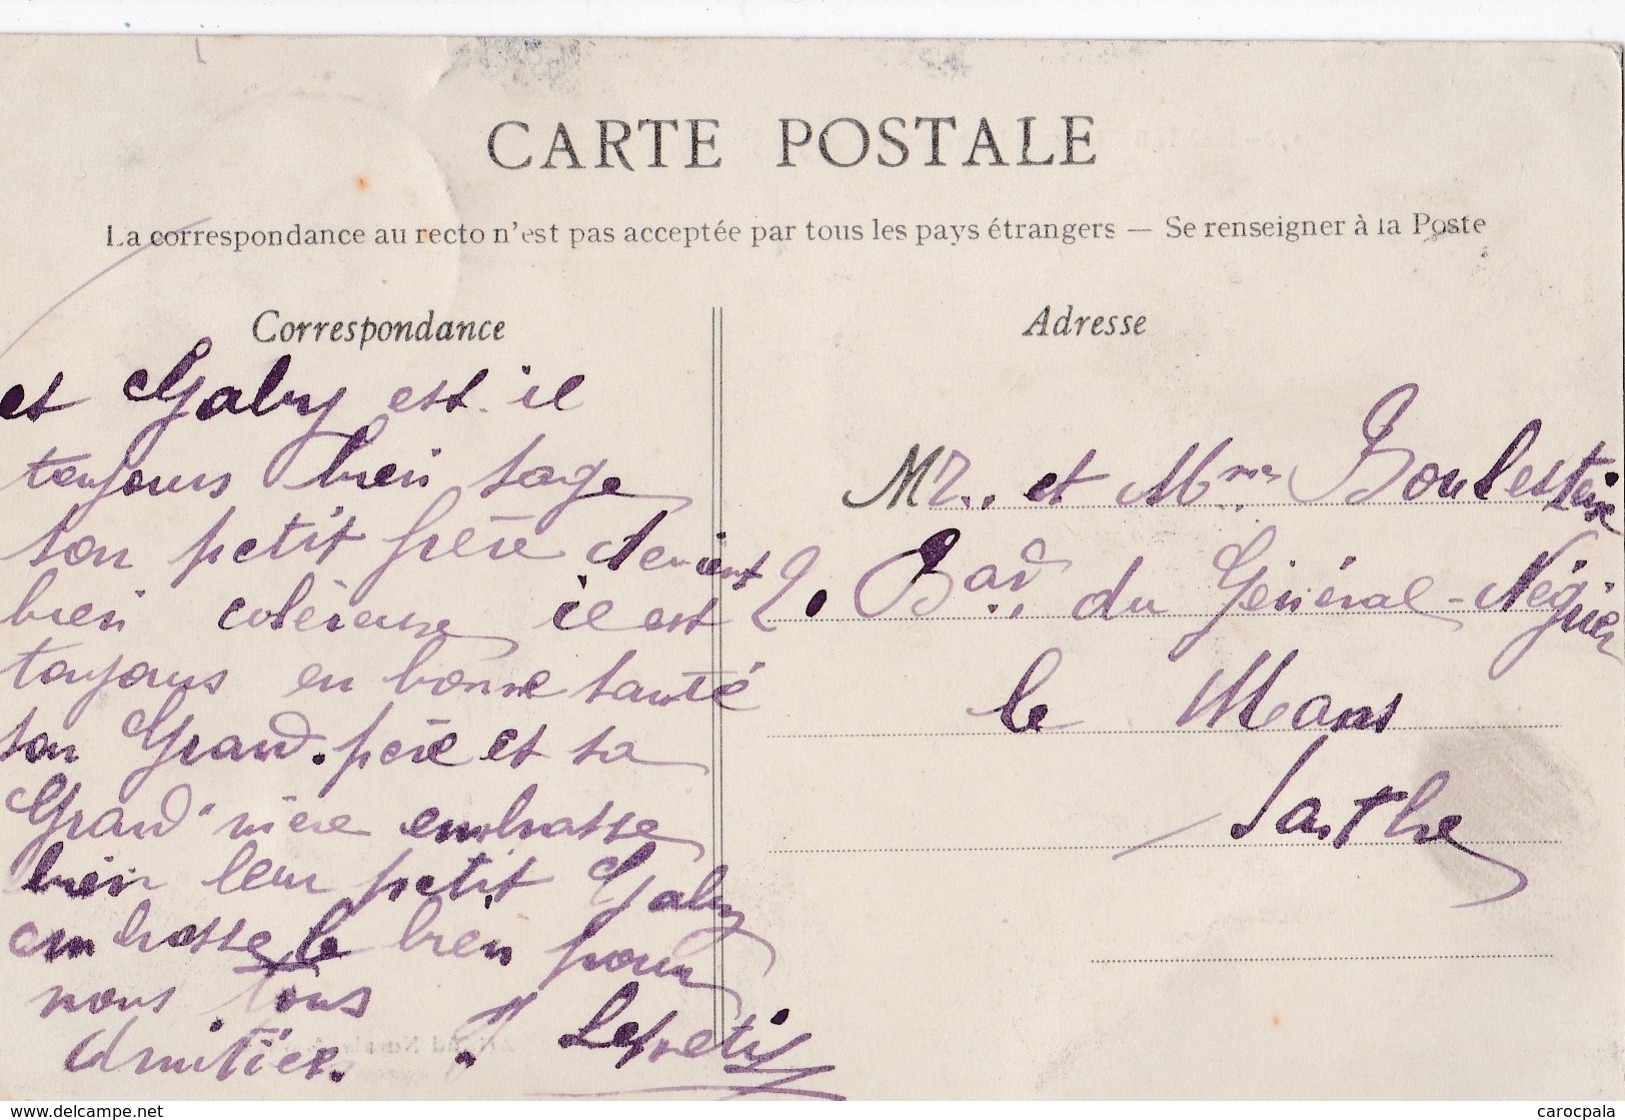 CARTE POSTALE
La correspondance au recto n'est pas acceptée par tous les pays étrangers — Se renseigner à la Poste
Correspondance
et Gaby est-il
toujours bien sage
son petit frère devient
bien colereuse il est
toujours en bonne santé
son Grand-père et sa
Grand'mère embrasse
bien leur petit Gaby
embrasse le bien pour
nous tous
Amitiés.
Adresse
Mr. et Mme Boulesteix
2. Bard du Général-Négrier
le Mans
Sarthe
www.delcampe.net
carocpala